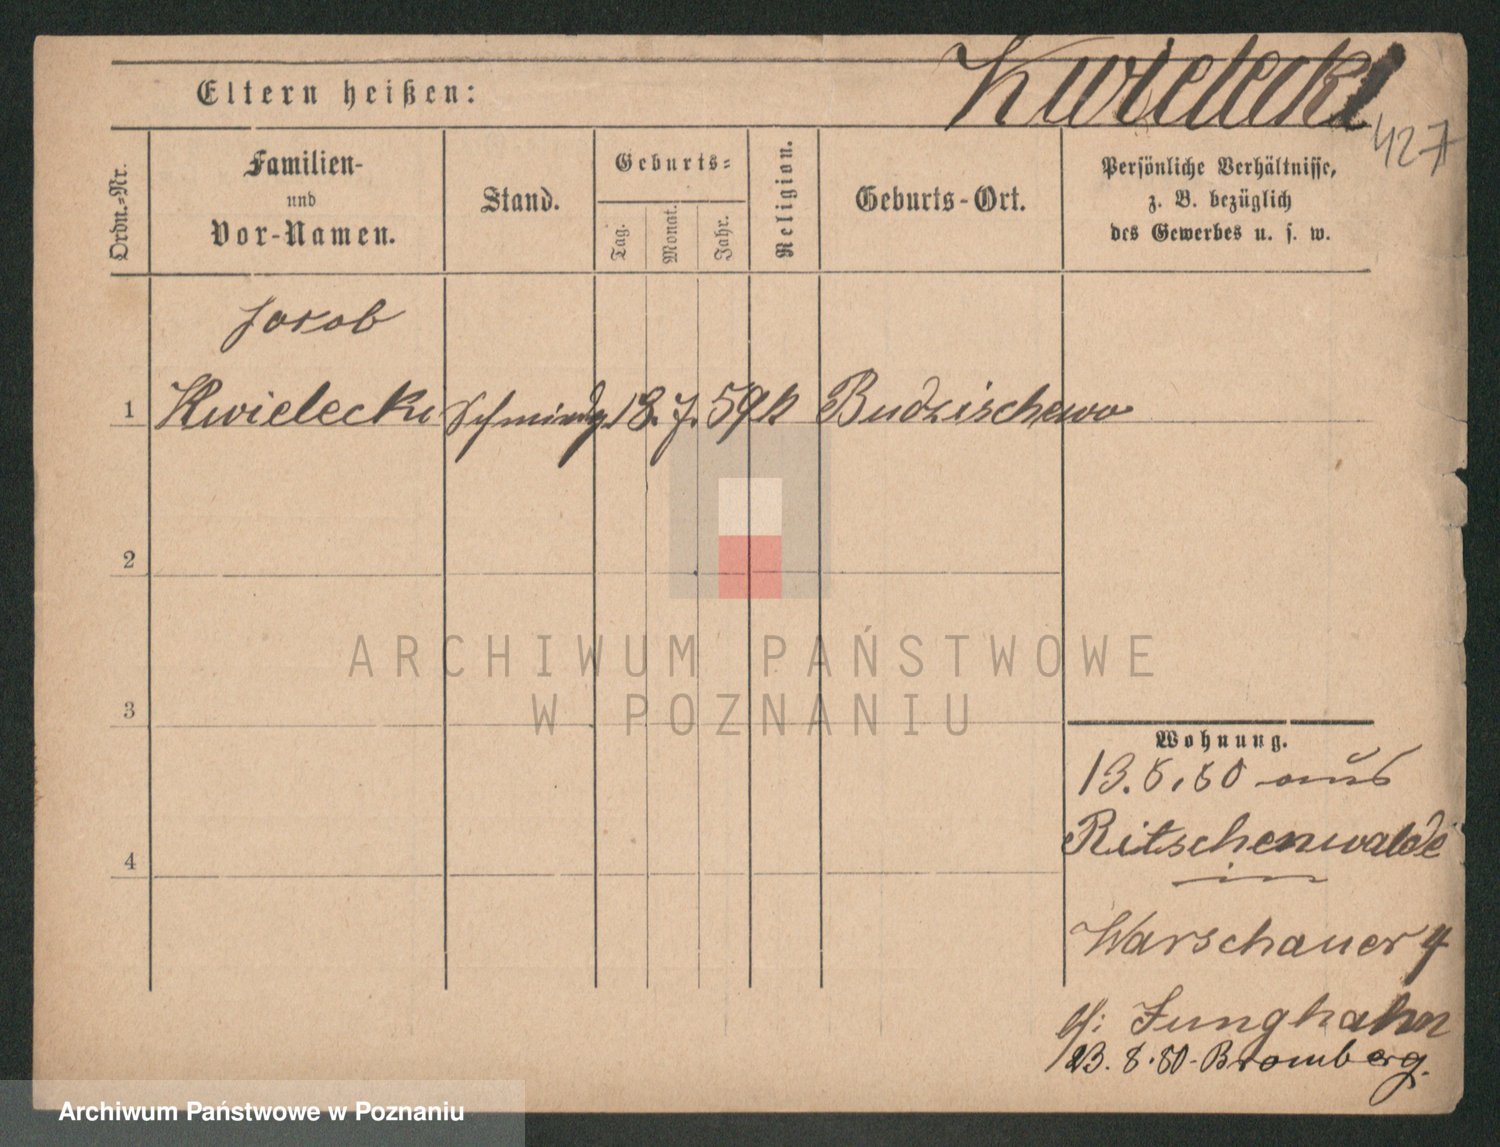 Kwielecki
Eltern heißen:
427
Ordn.-Nr.
Familien-
und
Vor-Namen.
Stand.
Geburts-
Tag.
Monat.
Jahr.
Religion.
Geburts-Ort.
Persönliche Verhältnisse,
z. B. bezüglich
des Gewerbes u. s. w.
Jacob
1 Kwielecki 18. 7. 59 k Budzischewo
2
3
4
ARCHIWUM PAŃSTWOWE
W POZNANIU
Wohnung.
13. 8. 80 aus
Ritschenwalde
in
Warschauer 4
b/: Junghahn
23. 8. 80 - Bromberg.
Archiwum Państwowe w Poznaniu